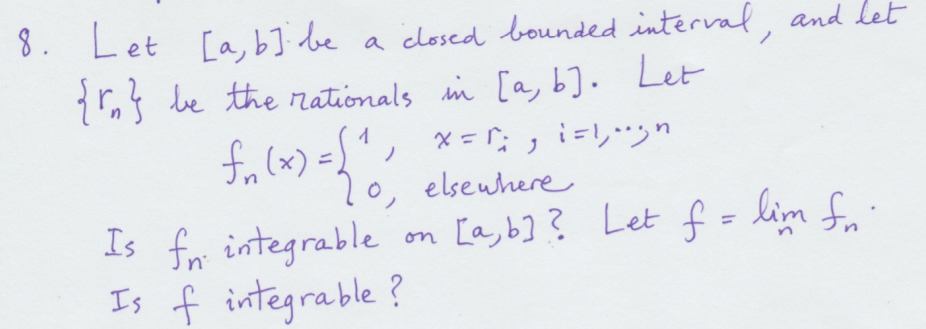 8. Let [a,b] be a closed bounded interval, and let
{rₙ} be the rationals in [a, b]. Let
fₙ(x) = { 1, x = rᵢ, i=1,...,n
0, elsewhere
Is fₙ integrable on [a,b]? Let f = lim fₙ.
n
Is f integrable?